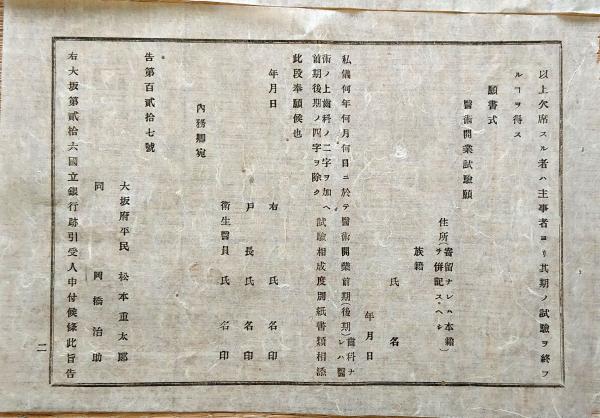 以上欠席スル者ハ主事者ヨリ其期ノ試驗ヲ終フ
ルヿヲ得ス
願書式
醫術開業試驗願
住所(寄留ナレハ本籍ヲ併記スヘシ)
族籍
氏名
年月日
私儀何年何月何日ニ於テ醫術開業前期(後期)齒科ナレハ醫
術ノ上齒科ノ二字ヲ加ヘ前期後期ノ四字ヲ除ク試驗相成度別紙書類相添
此段奉願候也
年月日
右氏名印
戸長氏名印
衛生醫員氏名印
內務卿宛
告第百貳拾七號
大坂府平民 松本重太郎
同 岡橋治助
右大坂第貳拾六國立銀行跡引受人申付候條此旨告
二